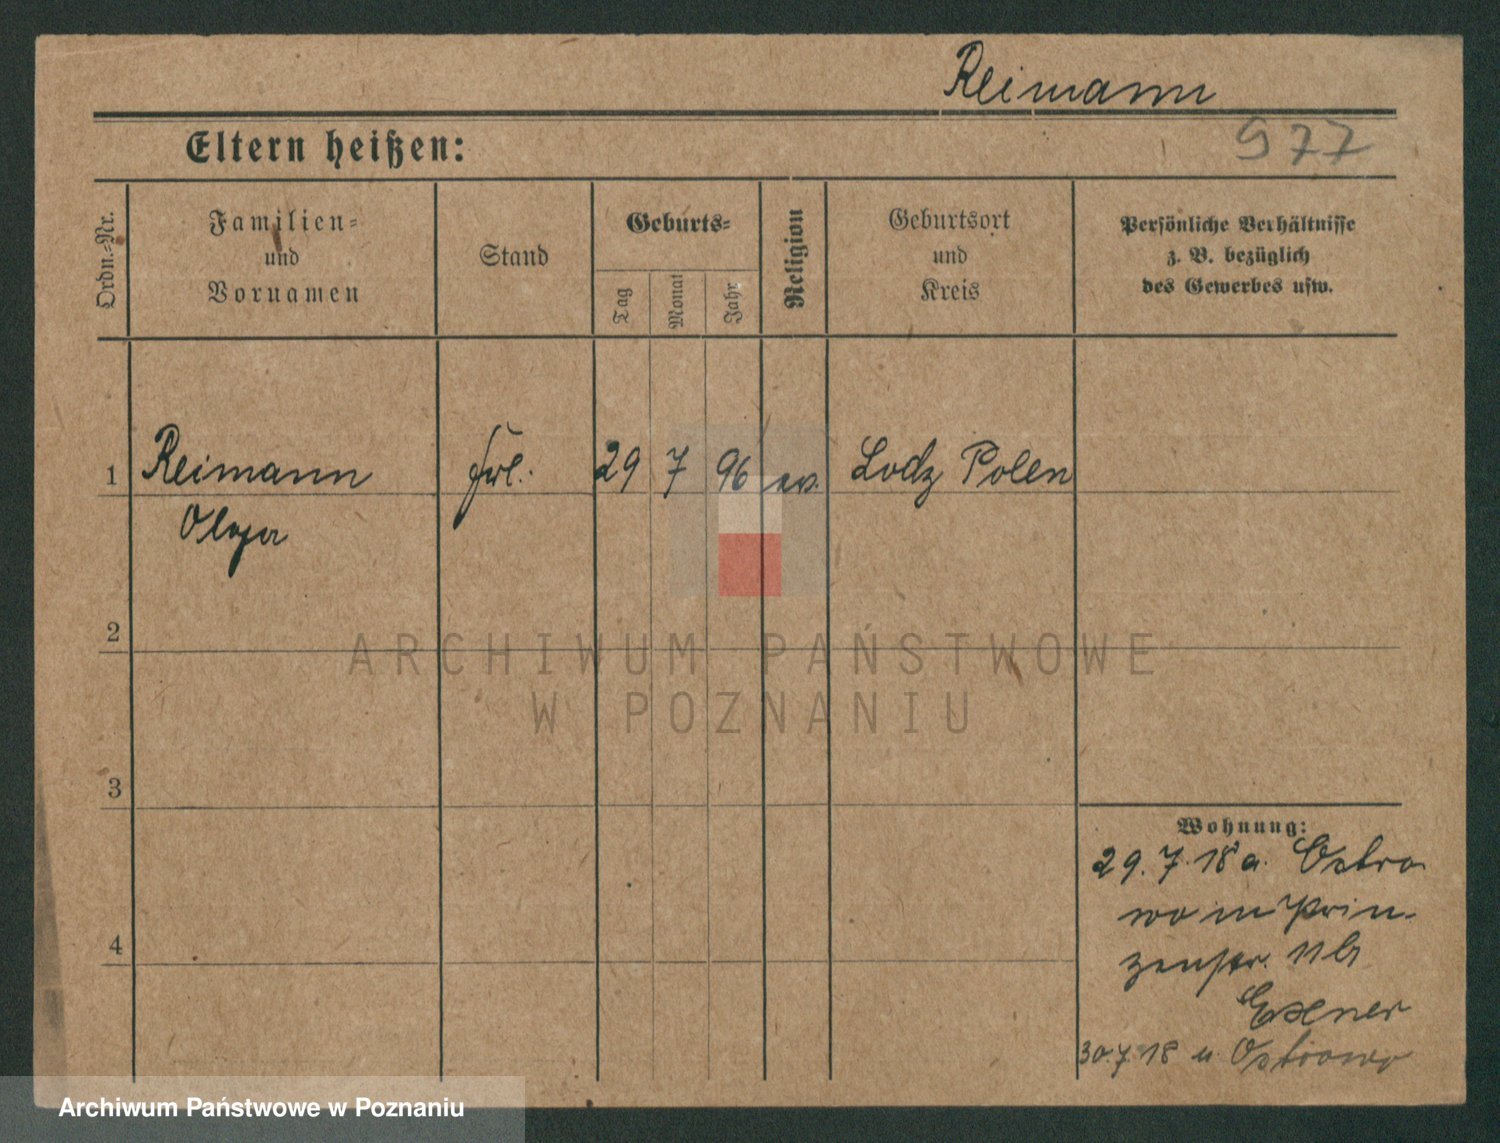 Reimann
977
Eltern heißen:
Ordn.-Nr.
Familien-
und
Vornamen
Stand
Geburts-
Tag
Monat
Jahr
Religion
Geburtsort
und
Kreis
Persönliche Verhältnisse
z. B. bezüglich
des Gewerbes usw.
1
Reimann
Olga
Frl.
29
7
96
ev.
Lodz Polen
2
3
4
Wohnung:
29.7.18 a. Ostro
wo in Prin-
zenstr. 11 b
Exner
30.7.18 u. Ostrowo
ARCHIWUM PAŃSTWOWE
W POZNANIU
Archiwum Państwowe w Poznaniu